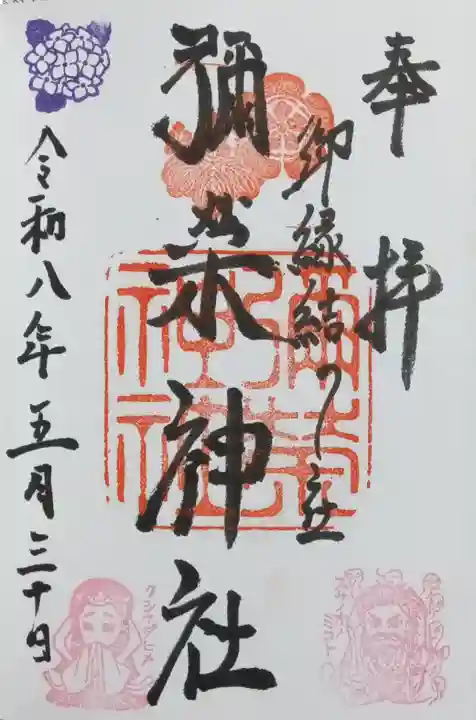 奉拝
御縁結び社
彌榮神社
令和八年五月三十日
スサノオノミコト
クシナダヒメ